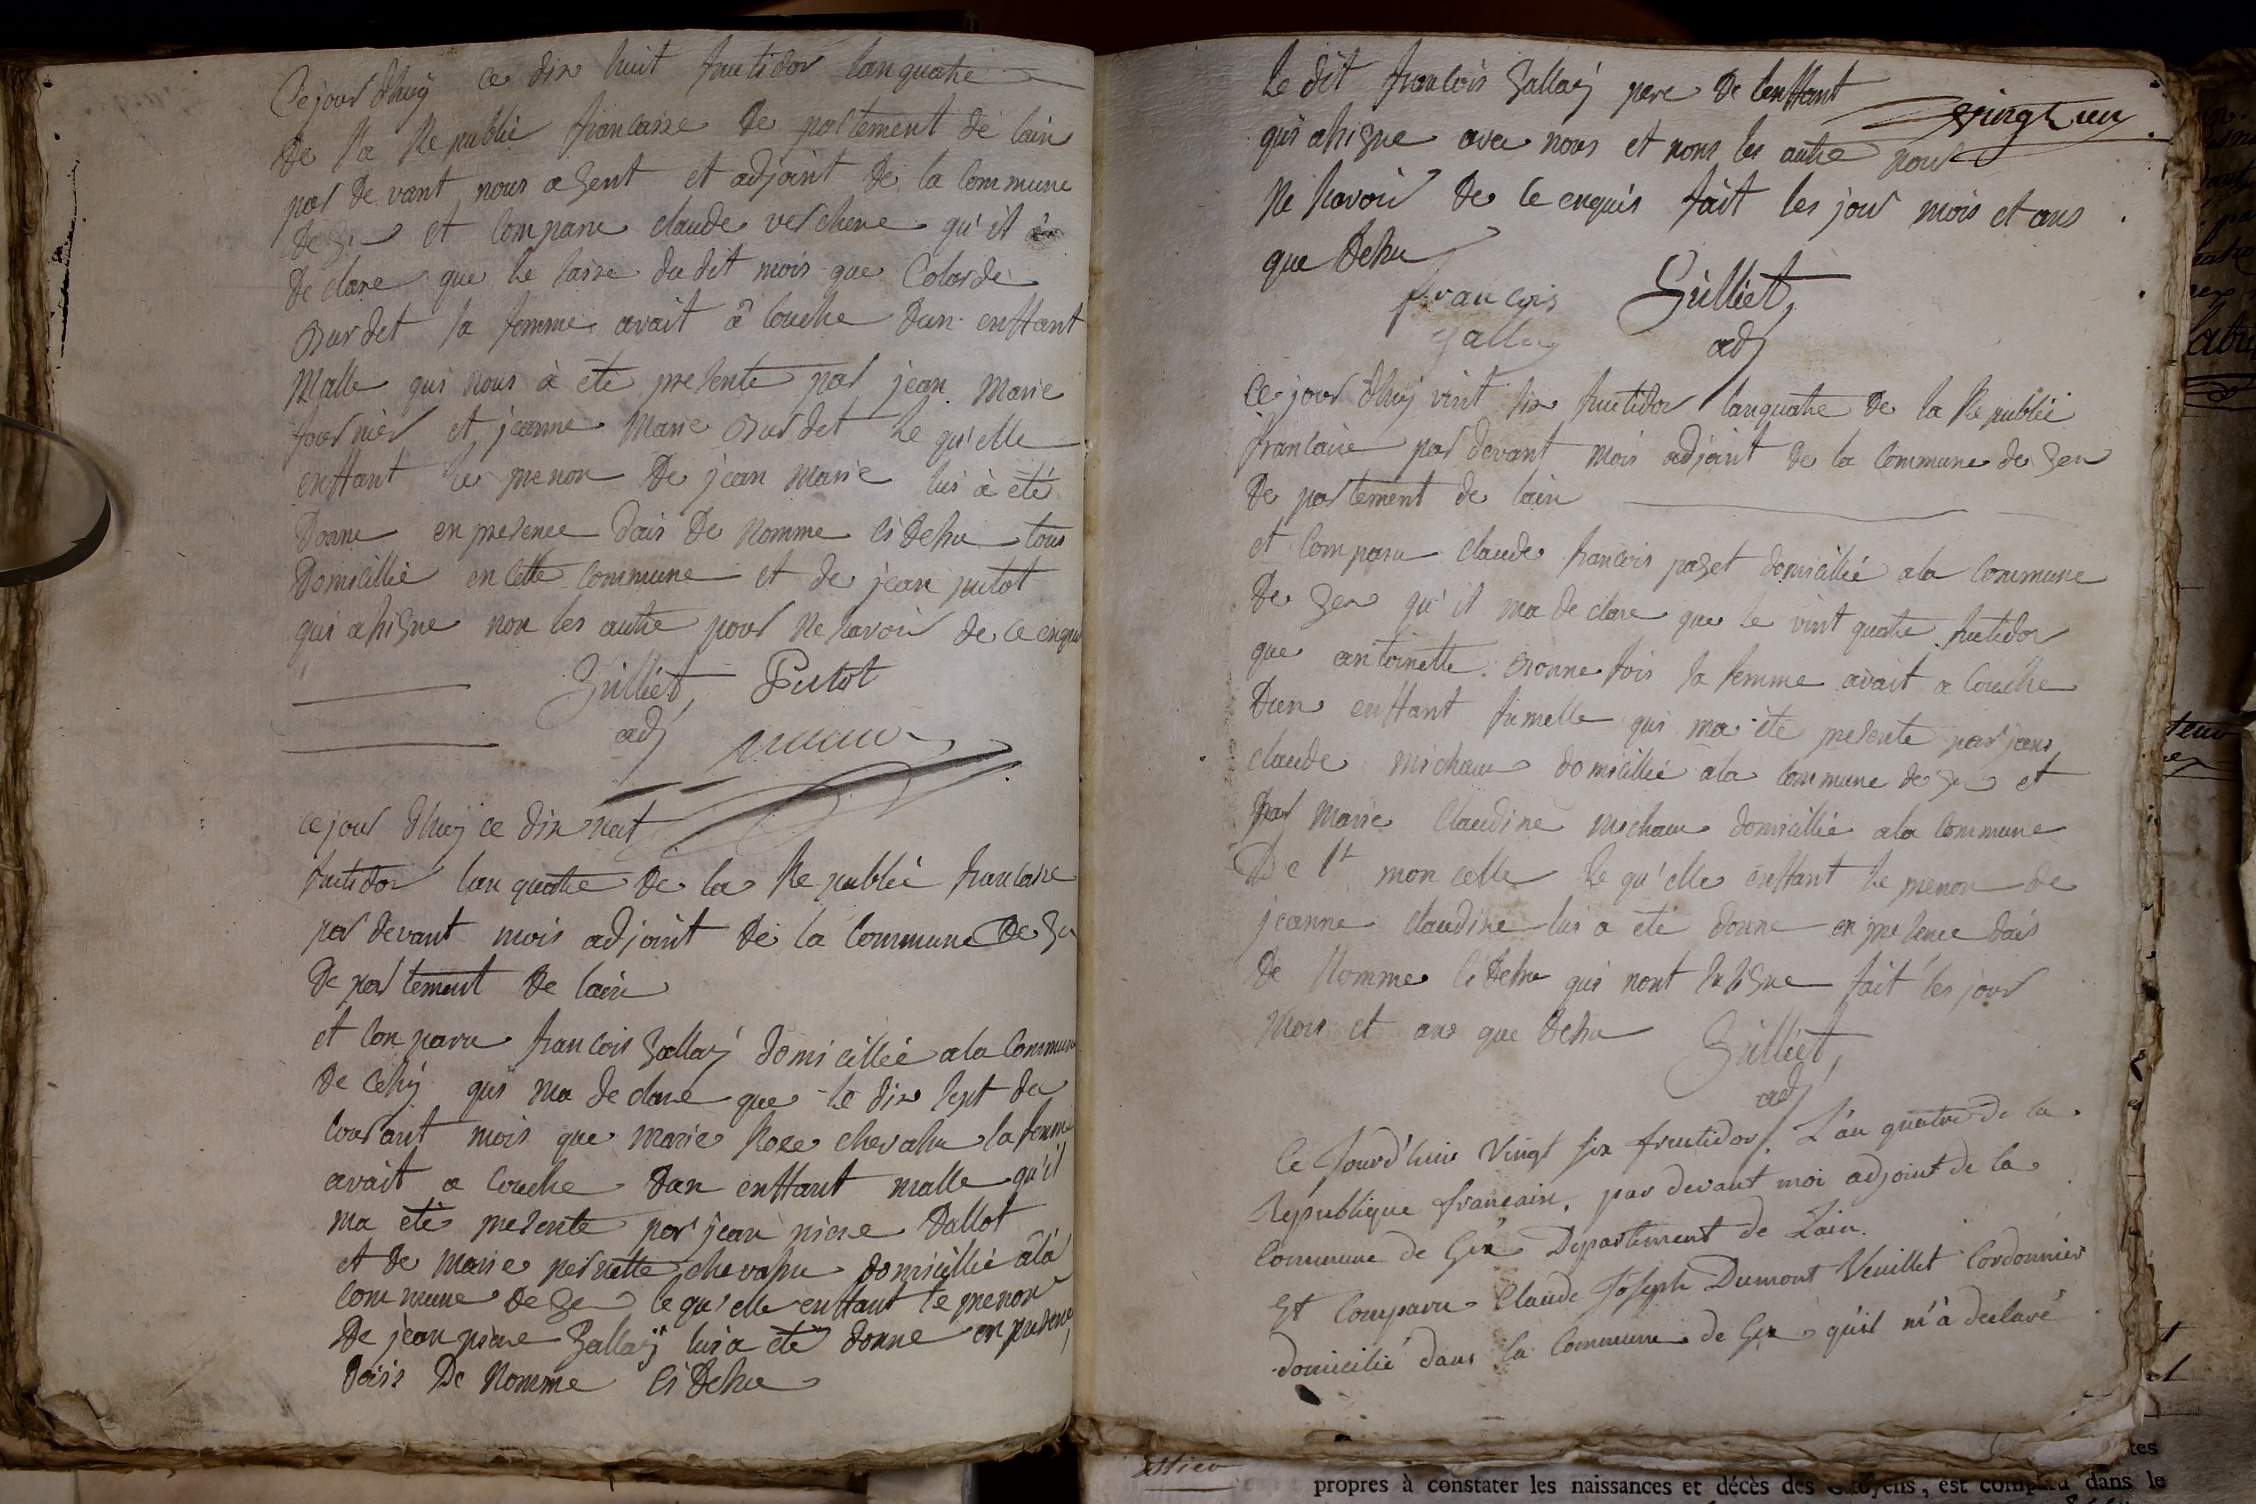 Ce jourdhuÿ ce dix huit fructidor lanquatre
de la Re public francaise de partement de lain
par de vant nous agent et adjoint de la commune
de Gex et comparu claude verchere qu'il a
de clare que le saise du dit mois que Colarde
Burdet sa femme avait a couche dun enffant
Malle qui nous à été presente par jean Marie
fournier et jeanne Marie Burdet le qu'elle
enffant le prenon de jean Marie lui à été
donne en presence dais de nomme ci desu tous
domicillié en cette commune et de jean putot
qui asigne non les autre pour ne savoir de ce enquis
Gulliet, Putot
adj
cejour dhuÿ ce dix neuf
fructidor lan quatre de la Re public francaise
par devant mois adjoint de la commune de Gex
de partement de lain
et conparu francois Gallaÿ domicillié ala commune
de Cessÿ qui ma de clare que le dix sept du
courant mois que marie Rose chevalu sa femme
avait a couche dun enffant malle qu'il
ma été presente par jean piere Dallot
et de marie pernette chevalu domicillié àla
commune de Gex le qu'elle enffant le prenon
de jean piere Gallaÿ lui a été donne en presence
dais de nomme ci desu
le dit francois Gallaÿ pere de lenffant
vingt un
qui asigne avec nous et nons les autre pour
ne savoir de ce enquis fait les jour mois et ans
que desu
francois Gulliet,
gallay adj
Ce jour dhuÿ vint six fructidor lanquatre de la Re public
francaise par devant mois adjoint de la commune de Gex
de partement de lain
et comparu claude francois paget domicillié ala commune
de Gex qu'il ma de clare que le vint quatre fructidor
que antoinette Bonnefois sa femme avait a couche
dun enffant fumelle qui ma été presente par jean
claude michaux domicillié àla commune de Gex et
par Marie Claudine michaux domicillié ala commune
De St moncelle le qu'elle enffant le prenon de
jeanne claudine lui a été donne en presence dais
de nomme ci desu qui nont su signe fait les jour
mois et ans que desu Gulliet,
adj
Ce Jourd'huis vingt six fructidor, L'an quatre de la
Republique francaise, par devant moi adjoint de la
Commune de Gex Departement de Lain.
Et Comparu Claude Joseph Dumont Veuillet Cordonnier
domicilié dans la Commune de Gex qu'il m'à declaré
propres à constater les naissances et décès des Citoyens, est dans le